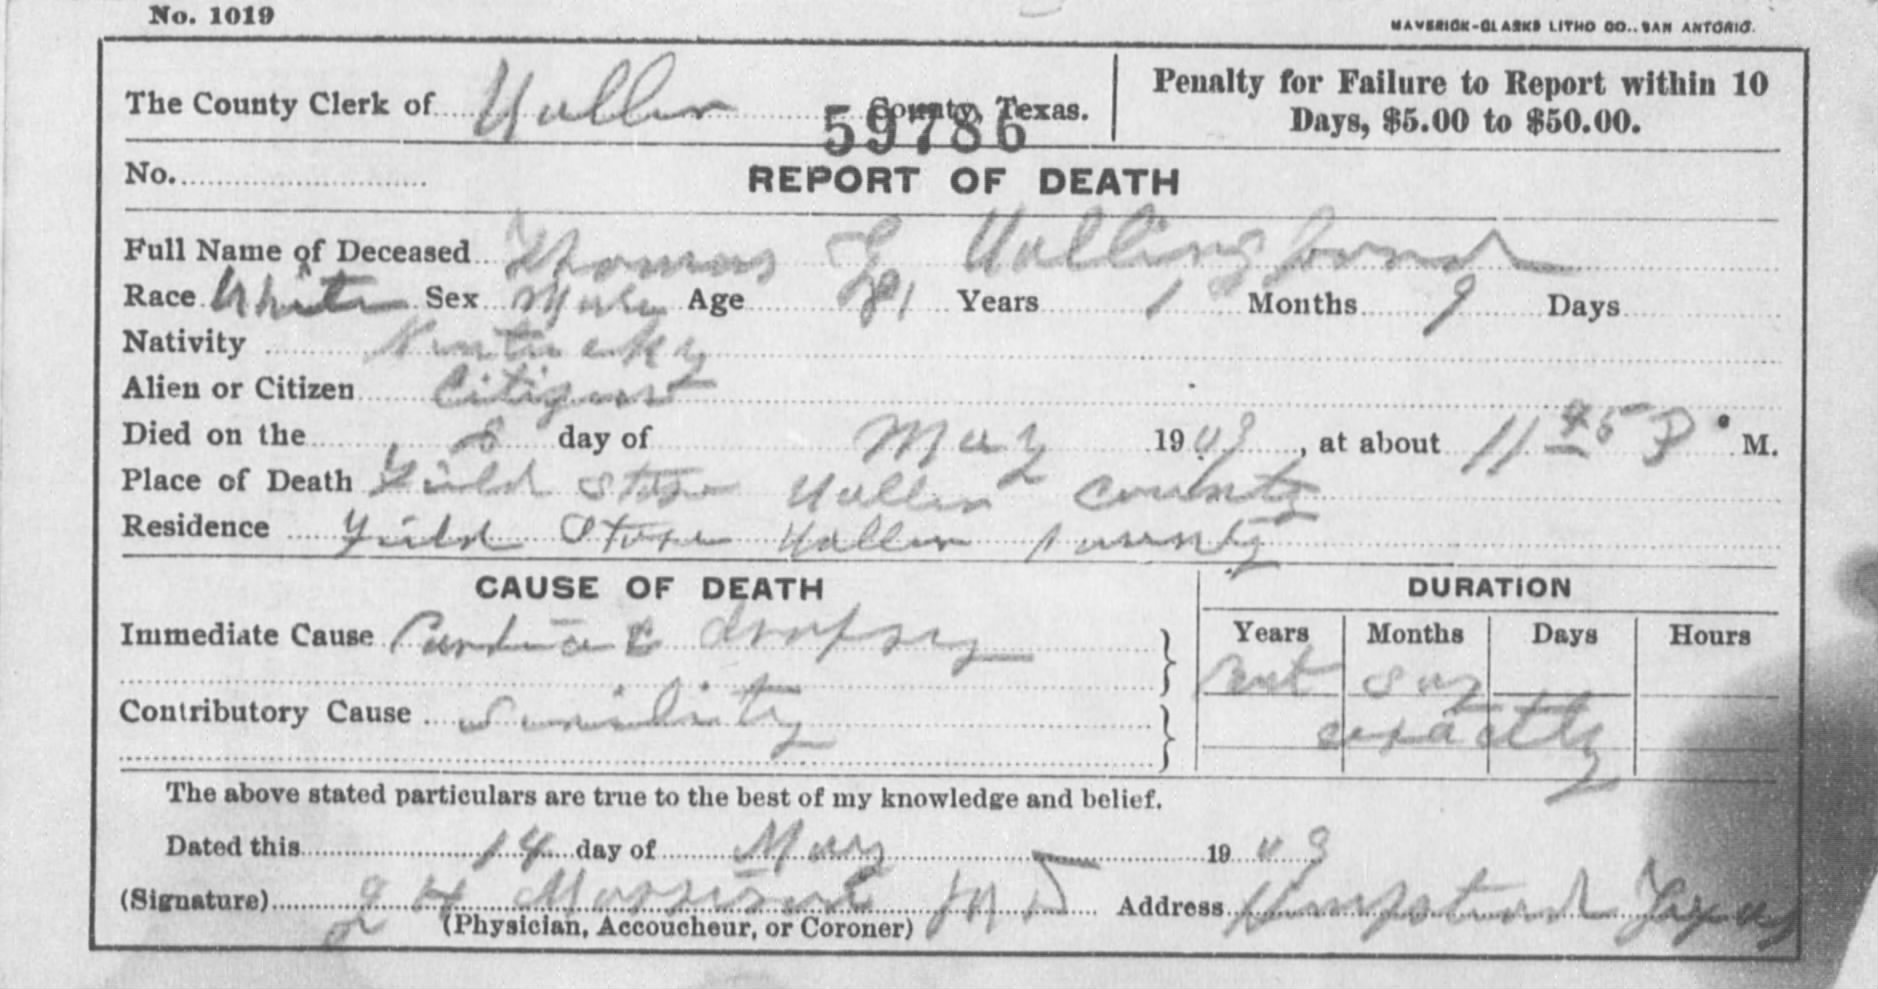 No. 1019
MAVERICK-CLARKE LITHO CO., SAN ANTONIO.
The County Clerk of Waller County, Texas.
59786
Penalty for Failure to Report within 10
Days, $5.00 to $50.00.
No.
REPORT OF DEATH
Full Name of Deceased Thomas Wallingford
Race White Sex Male Age 81 Years 1 Months 9 Days
Nativity Kentucky
Alien or Citizen Citizen
Died on the 8 day of May 1909, at about 11 45 P. M.
Place of Death Field Store Waller County
Residence Field Store Waller County
CAUSE OF DEATH
DURATION
Immediate Cause Cardiac dropsy
Years Months Days Hours
Contributory Cause Senility
not say
exactly
The above stated particulars are true to the best of my knowledge and belief.
Dated this 14 day of May 1909
(Signature) H Morrison M D Address Hempstead Texas
(Physician, Accoucheur, or Coroner)